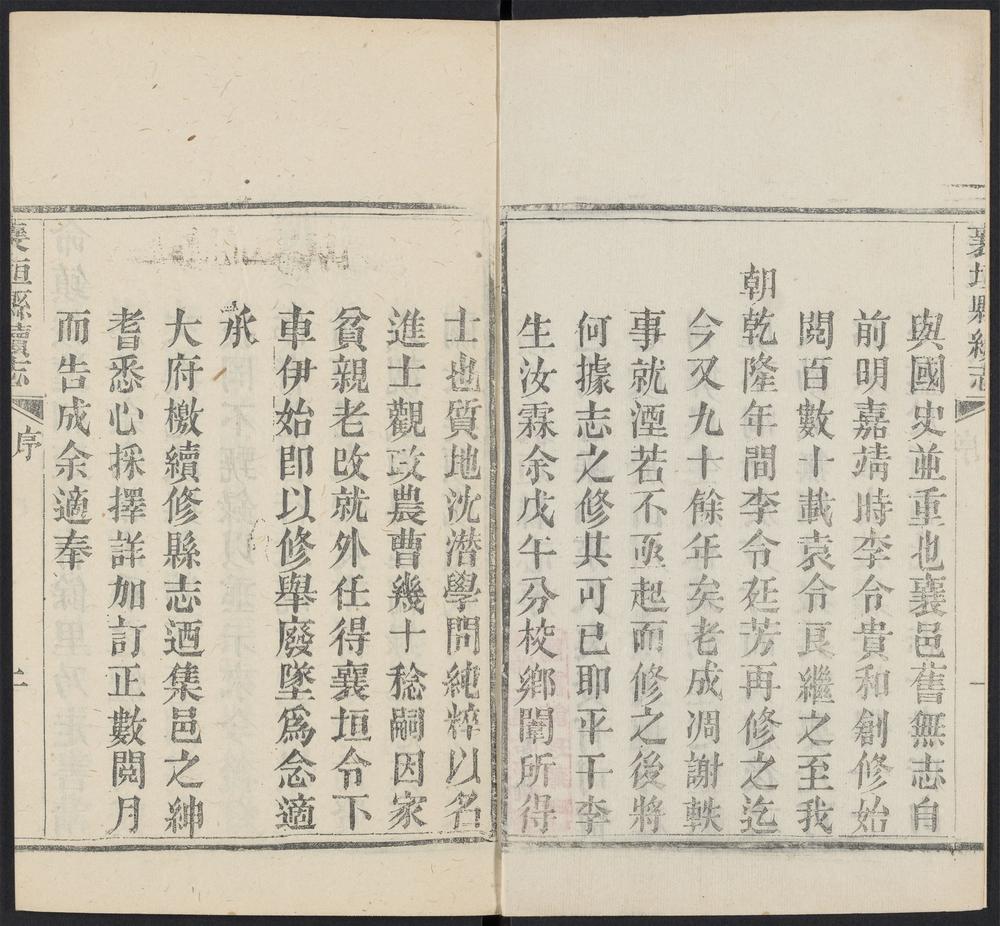 襄垣縣續志
序
一
與國史並重也襄邑舊無志自
前明嘉靖時李令貴和創修始
閱百數十載袁令良繼之至我
朝乾隆年間李令廷芳再修之迄
今又九十餘年矣老成凋謝軼
事就湮若不亟起而修之後將
何據志之修其可已耶平干李
生汝霖余戊午分校鄉闈所得
士也質地沈潛學問純粹以名
進士觀政農曹幾十稔嗣因家
貧親老改就外任得襄垣令下
車伊始即以修舉廢墜爲念適
承
大府檄續修縣志迺集邑之紳
耆悉心採擇詳加訂正數閱月
而告成余適奉
襄垣縣續志
序
二